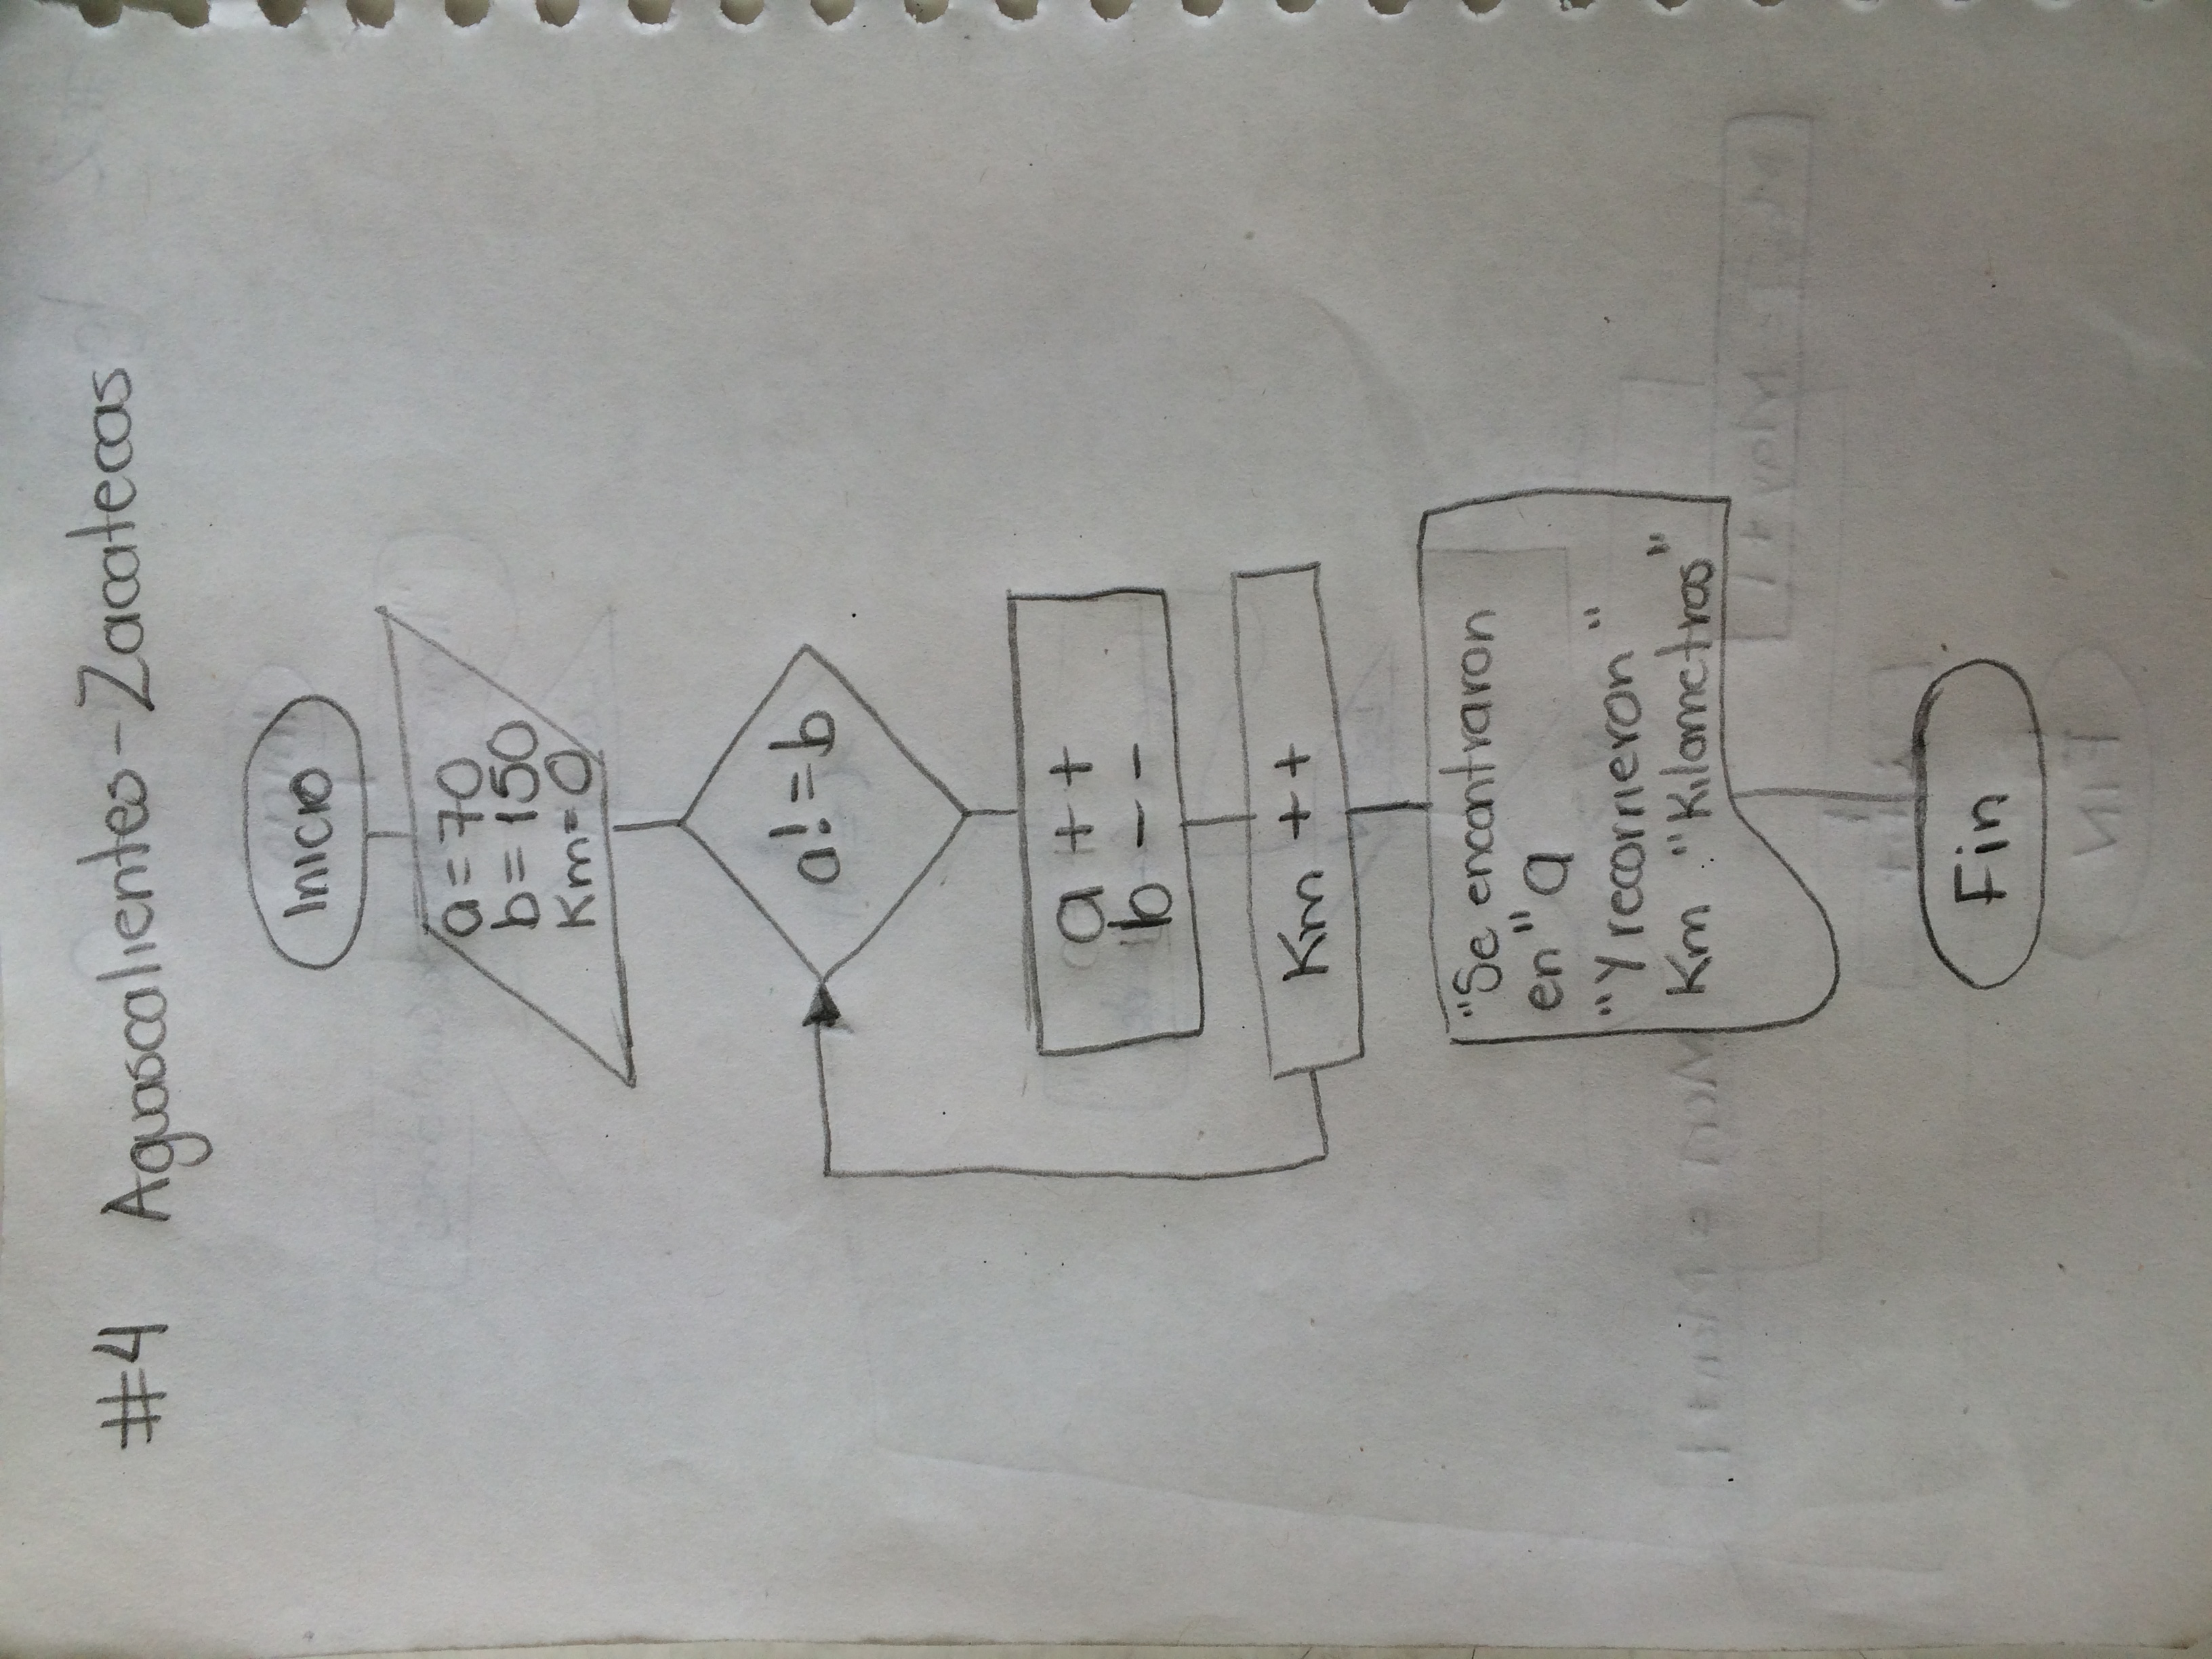 #4 Aguascalientes-Zacatecas
Inicio
a=70
b=150
Km=0
a!=b
a ++
b --
Km ++
"Se encontraron
en" a
"Y recorrieron "
Km "Kilometros"
Fin